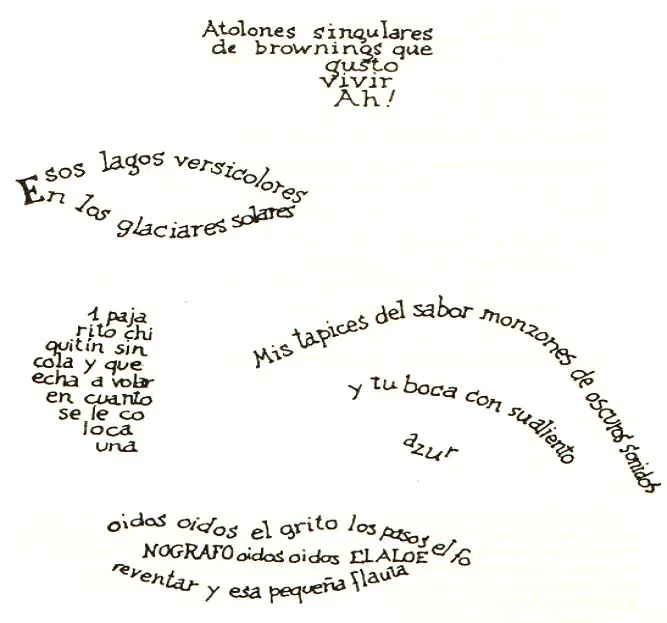 Atolones singulares
de brownings que
gusto
vivir
Ah!
Esos lagos versicolores
En los glaciares solares
1 paja
rito chi
quitín sin
cola y que
echa a volar
en cuanto
se le co
loca
una
Mis tapices del sabor monzones de oscuros sonidos
y tu boca con su aliento
azur
oidos oidos el grito los pasos el fo
NOGRAFO oidos oidos EL ALOE
reventar y esa pequeña flauta